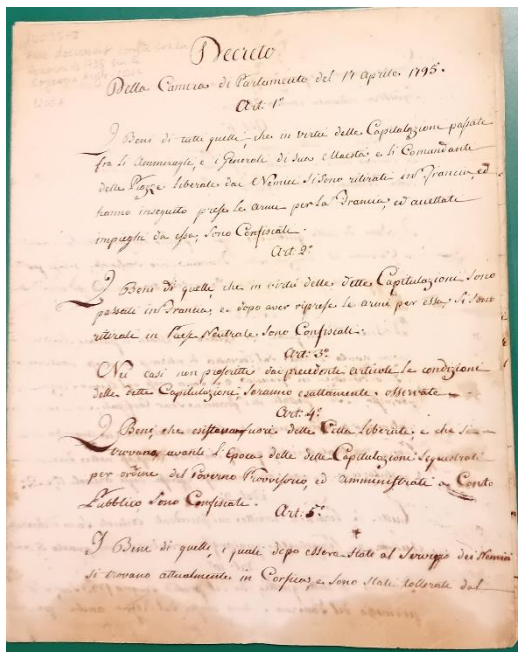 Decreto
Della Camera di Parlamento del 17 Aprile 1795.
Art: 1°
I Beni di tutti quelli, che in virtù delle Capitulazione passate
fra li Ammiragli, e i Generale di sua Maestà e li Comandante
delle Piazze liberate dai Nemici Si Sono ritirati in Francia, ed
hanno inseguito prese le arme per la Francia, ed accettati
impieghi da essa, Sono Confiscati.
Art: 2°
I Beni di quelli, che in virtù delle dette Capitulazione Sono
passati in Francia, e dopo aver riprese le arme per essa, Si Sono
ritirati in Paese Neutrale, Sono Confiscati.
Art: 3°
Nei casi non prescritti dai precedente articoli le condizione
delle dette Capitulazione Seranno esattamente osservate
Art: 4°
I Beni, che esistevano fuori delle Città liberate, e che si
trovano, avanti l'Epoca delle dette Capitulazioni Sequestrati
per ordine del Governo Provvisorio, ed amministrati a Conto
Pubblico Sono Confiscati.
Art: 5°
I Beni di quelli, i quali dopo essere stati al Servizio dei Nemici
si trovano attualmente in Corsica, e sono stati tollerati dal